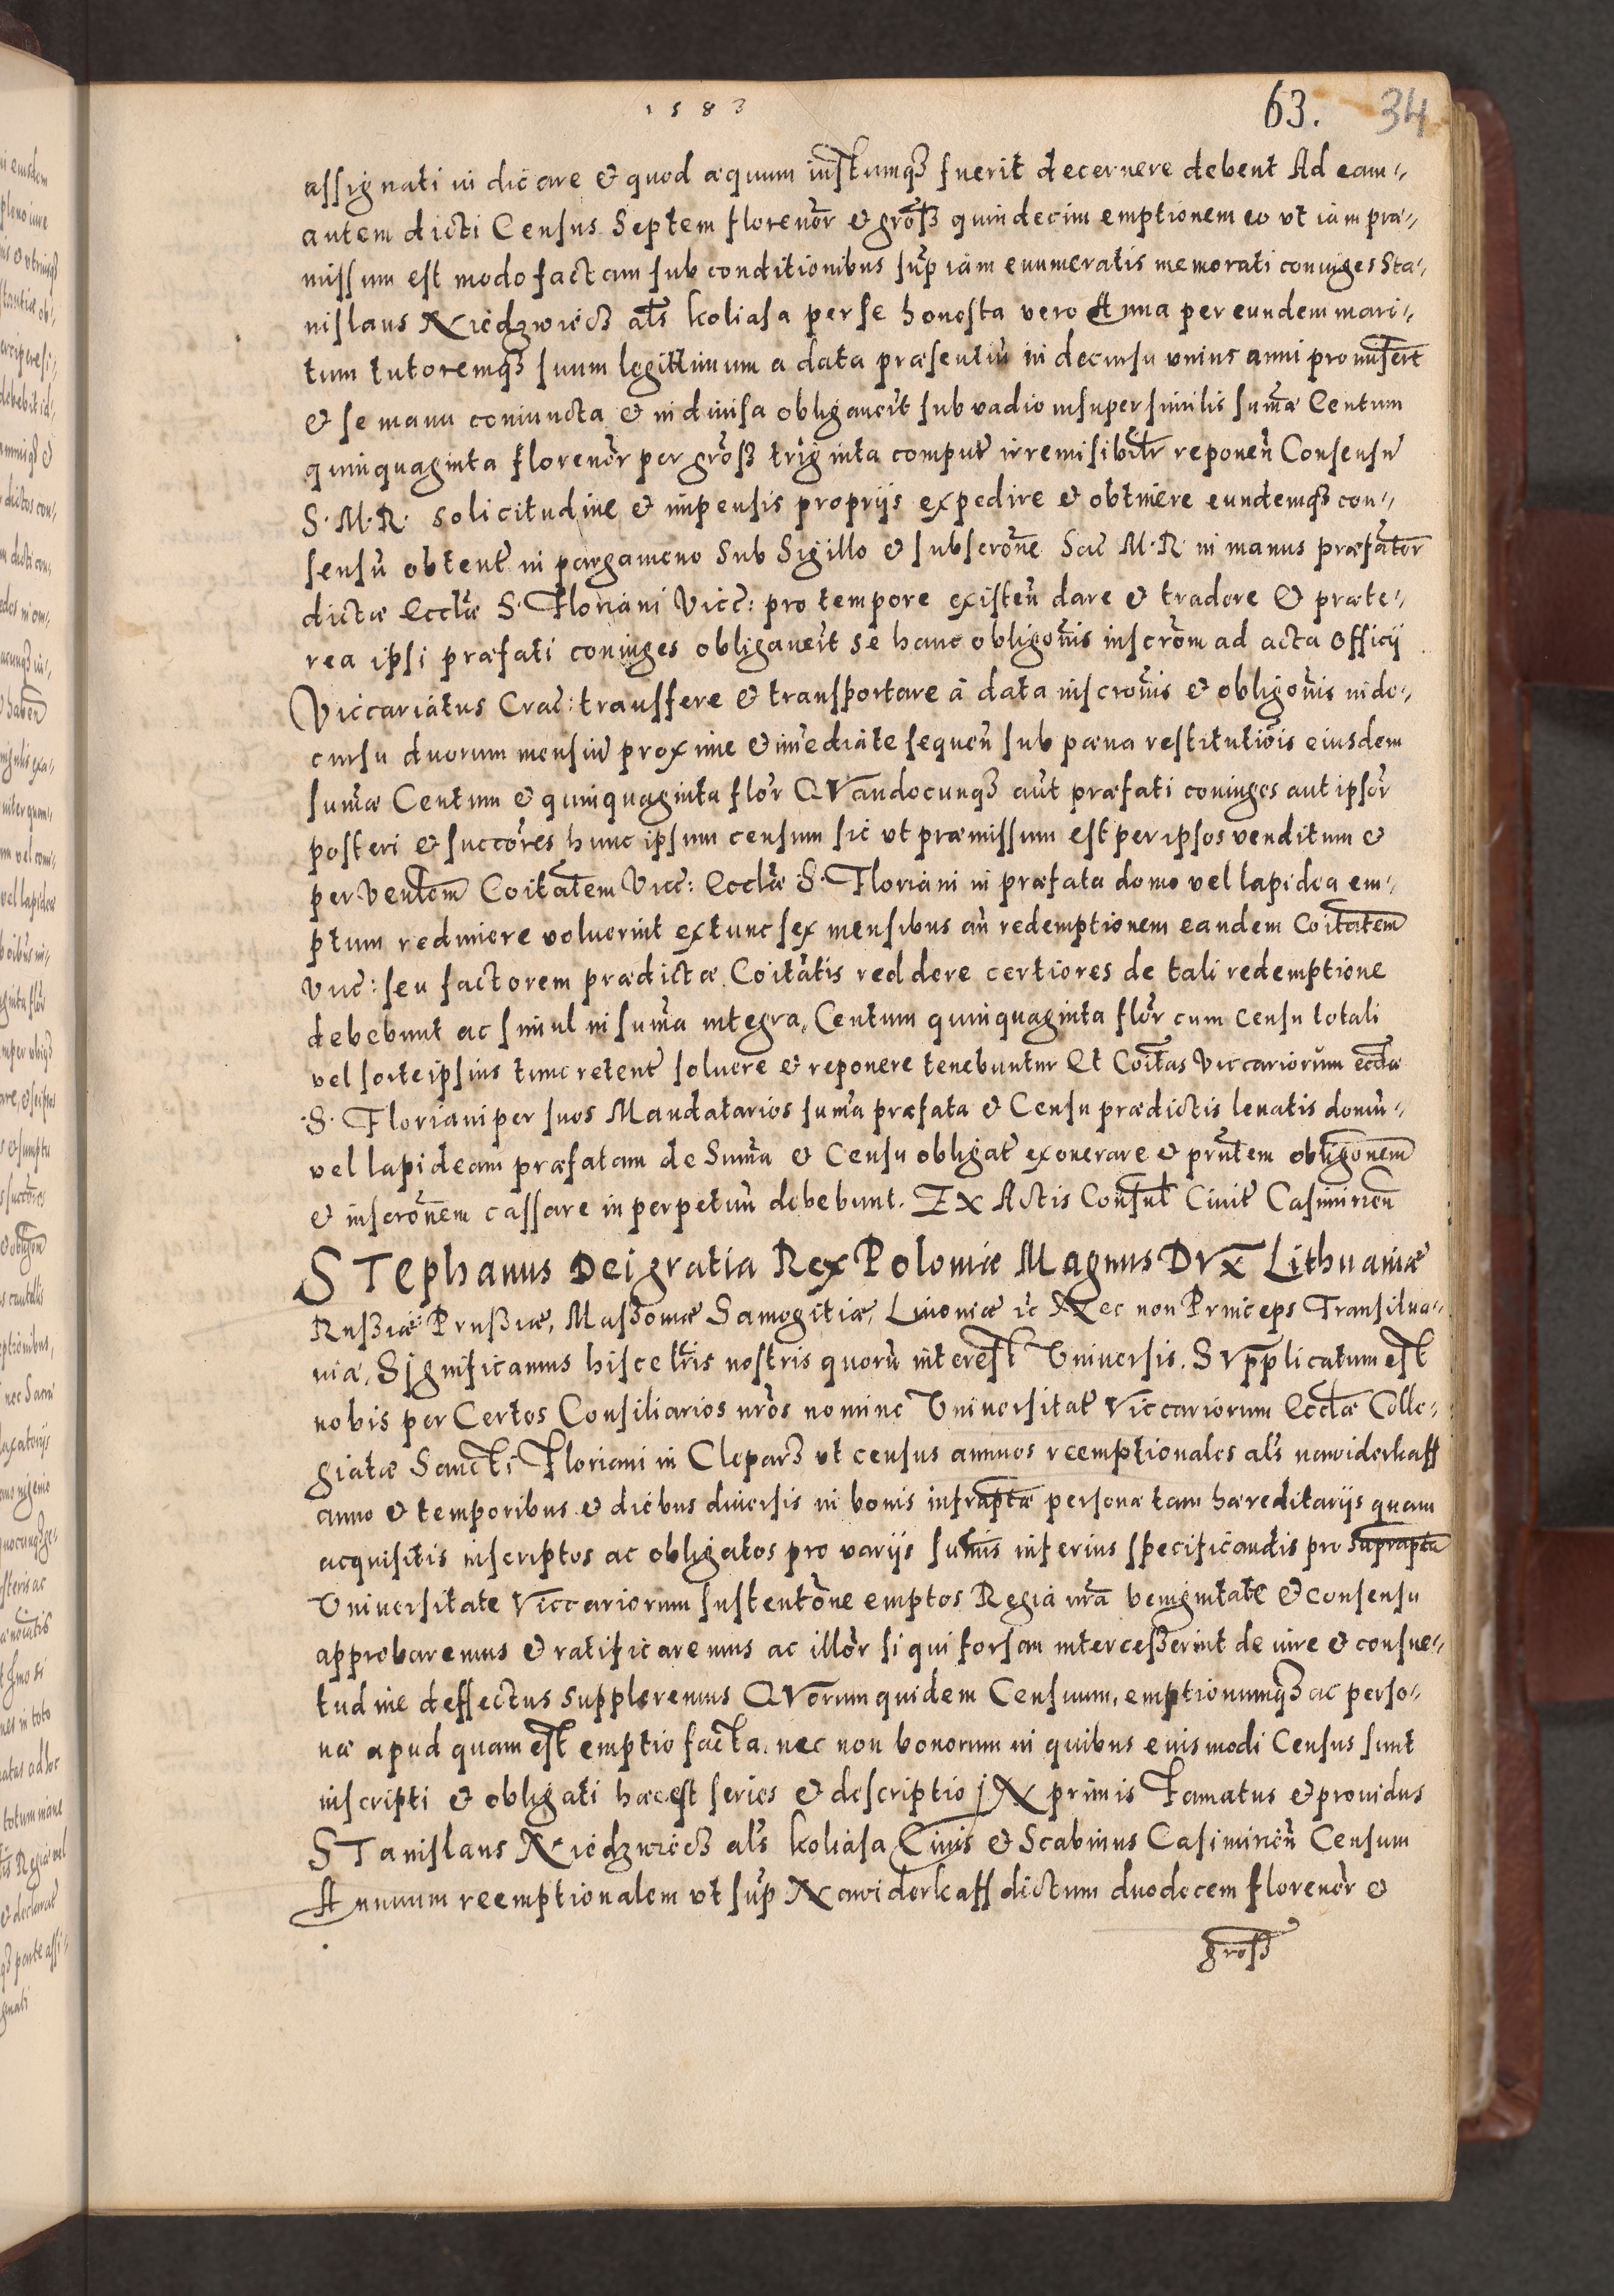 1583
63. 34
assignati indicare & quod æquum iustumq3 fuerit decernere debent Ad eam-
autem dicti Census Septem florenor̃ & gross̃ quindecim emptionem eo vt iam præ-
missum est modo factam sub conditionibus sup̃ iam enumeratis memorati coniuges Sta-
nislaus Niedzwiecz al̃s koliasa per se honesta vero Anna per eundem mari-
tum tutoremq3 suum legittimum a data præsentiũ in decursu vnius anni promiser̃t
& se manu coniuncta & indiuisa obligauer̃t sub vadio insuper similis sum̃æ Centum
quinquaginta florenor̃ per gross̃ triginta comput̃ irremisibil̃r reponen̄ Consensũ
S. M. R. solicitudine & impensis proprijs expedire & obtinere eundemq3 con-
sensũ obtent̃ in pargameno Sub Sigillo & subscrõne Sac̃ M. R in manus præfator̃
dictæ Eccl̃æ S. Floriani Vicc̃: pro tempore existen̄ dare & tradere & præte-
rea ipsi præfati coniuges obligauer̃t se hanc obligõnis inscrõm ad acta officij
Viccariatus Crac̃: transfere & transportare a data inscrõnis & obligõnis in de-
cursu duorum mensiũ proxime & im̃ediate sequen̄ sub pæna restitutiõis eiusdem
sum̃æ Centum & quinquaginta flor̃ QVandocunq3 aũt præfati coniuges aut ipsor̃
posteri & succõres hunc ipsum censum sic vt præmissum est per ipsos venditum &
per Ven̄tem Cõitatem Vicc̃: Eccl̃æ S. Floriani in præfata domo vel lapidea em-
ptum redimere voluerint extunc sex mensibus añ redemptionem eandem Cõitatem
Vicc̃: seu factorem prædictæ Cõitatis reddere certiores de tali redemptione
debebunt ac simul in sum̃a integra, Centum quinquaginta flor̃ cum censu totali
vel sorte ipsius tunc retent̃ soluere & reponere tenebuntur Et Cõitas Viccariorum eccl̃æ
S. Floriani per suos Mandatarios sum̃a præfata & Censu prædictis leuatis domũ-
vel lapideam præfatam de Sum̃a & Censu obligat̃ exonerare & prñtem obligõnem
& inscrõnem cassare in perpetuũ debebunt. EX Actis Consul̃ Ciuit̃ Casimirien̄
STephanus Dei gratia Rex Poloniæ Magnus DVX Lithuaniæ
Russiæ Prussiæ, Massouiæ Samogitiæ, Liuoniæ ic̃ Nec non Princeps Transilua-
niæ, SIgnificamus hisce lr̃is nostris quorũ interest Vniuersis. SVpplicatum est
nobis per Certos Consiliarios nr̃os nomine Vniuersitat̃ Viccariorum Eccl̃æ Colle-
giatæ Sancti Floriani in Cleparz vt census annuos reemptionales al̃s nawiderkaff
anno & temporibus & diebus diuersis in bonis infraptæ personæ tam hæreditarijs quam
acquisitis inscriptos ac obligatos pro varijs sum̃is inferius specificandis pro supraptã
Vniuersitate Viccariorum sustentõne emptos Regia nr̃a benignitate & consensu
approbaremus & ratificaremus ac illor̃ si qui forsan intercesserint de iure & consue-
tudine deffectus suppleremus QVorum quidem Censuum, emptionumq3 ac perso-
næ apud quam est emptio facta. nec non bonorum in quibus euismodi Census sunt
inscripti & obligati hæc est series & descriptio IN primis Famatus & prouidus
STanislaus Niedzwiecz al̃s koliasa Ciuis & Scabinus Casimirien̄ Censum
Annuum reemptionalem vt sup̃ Nawiderkaff dictum duodecem florenor̃ &
gross̃